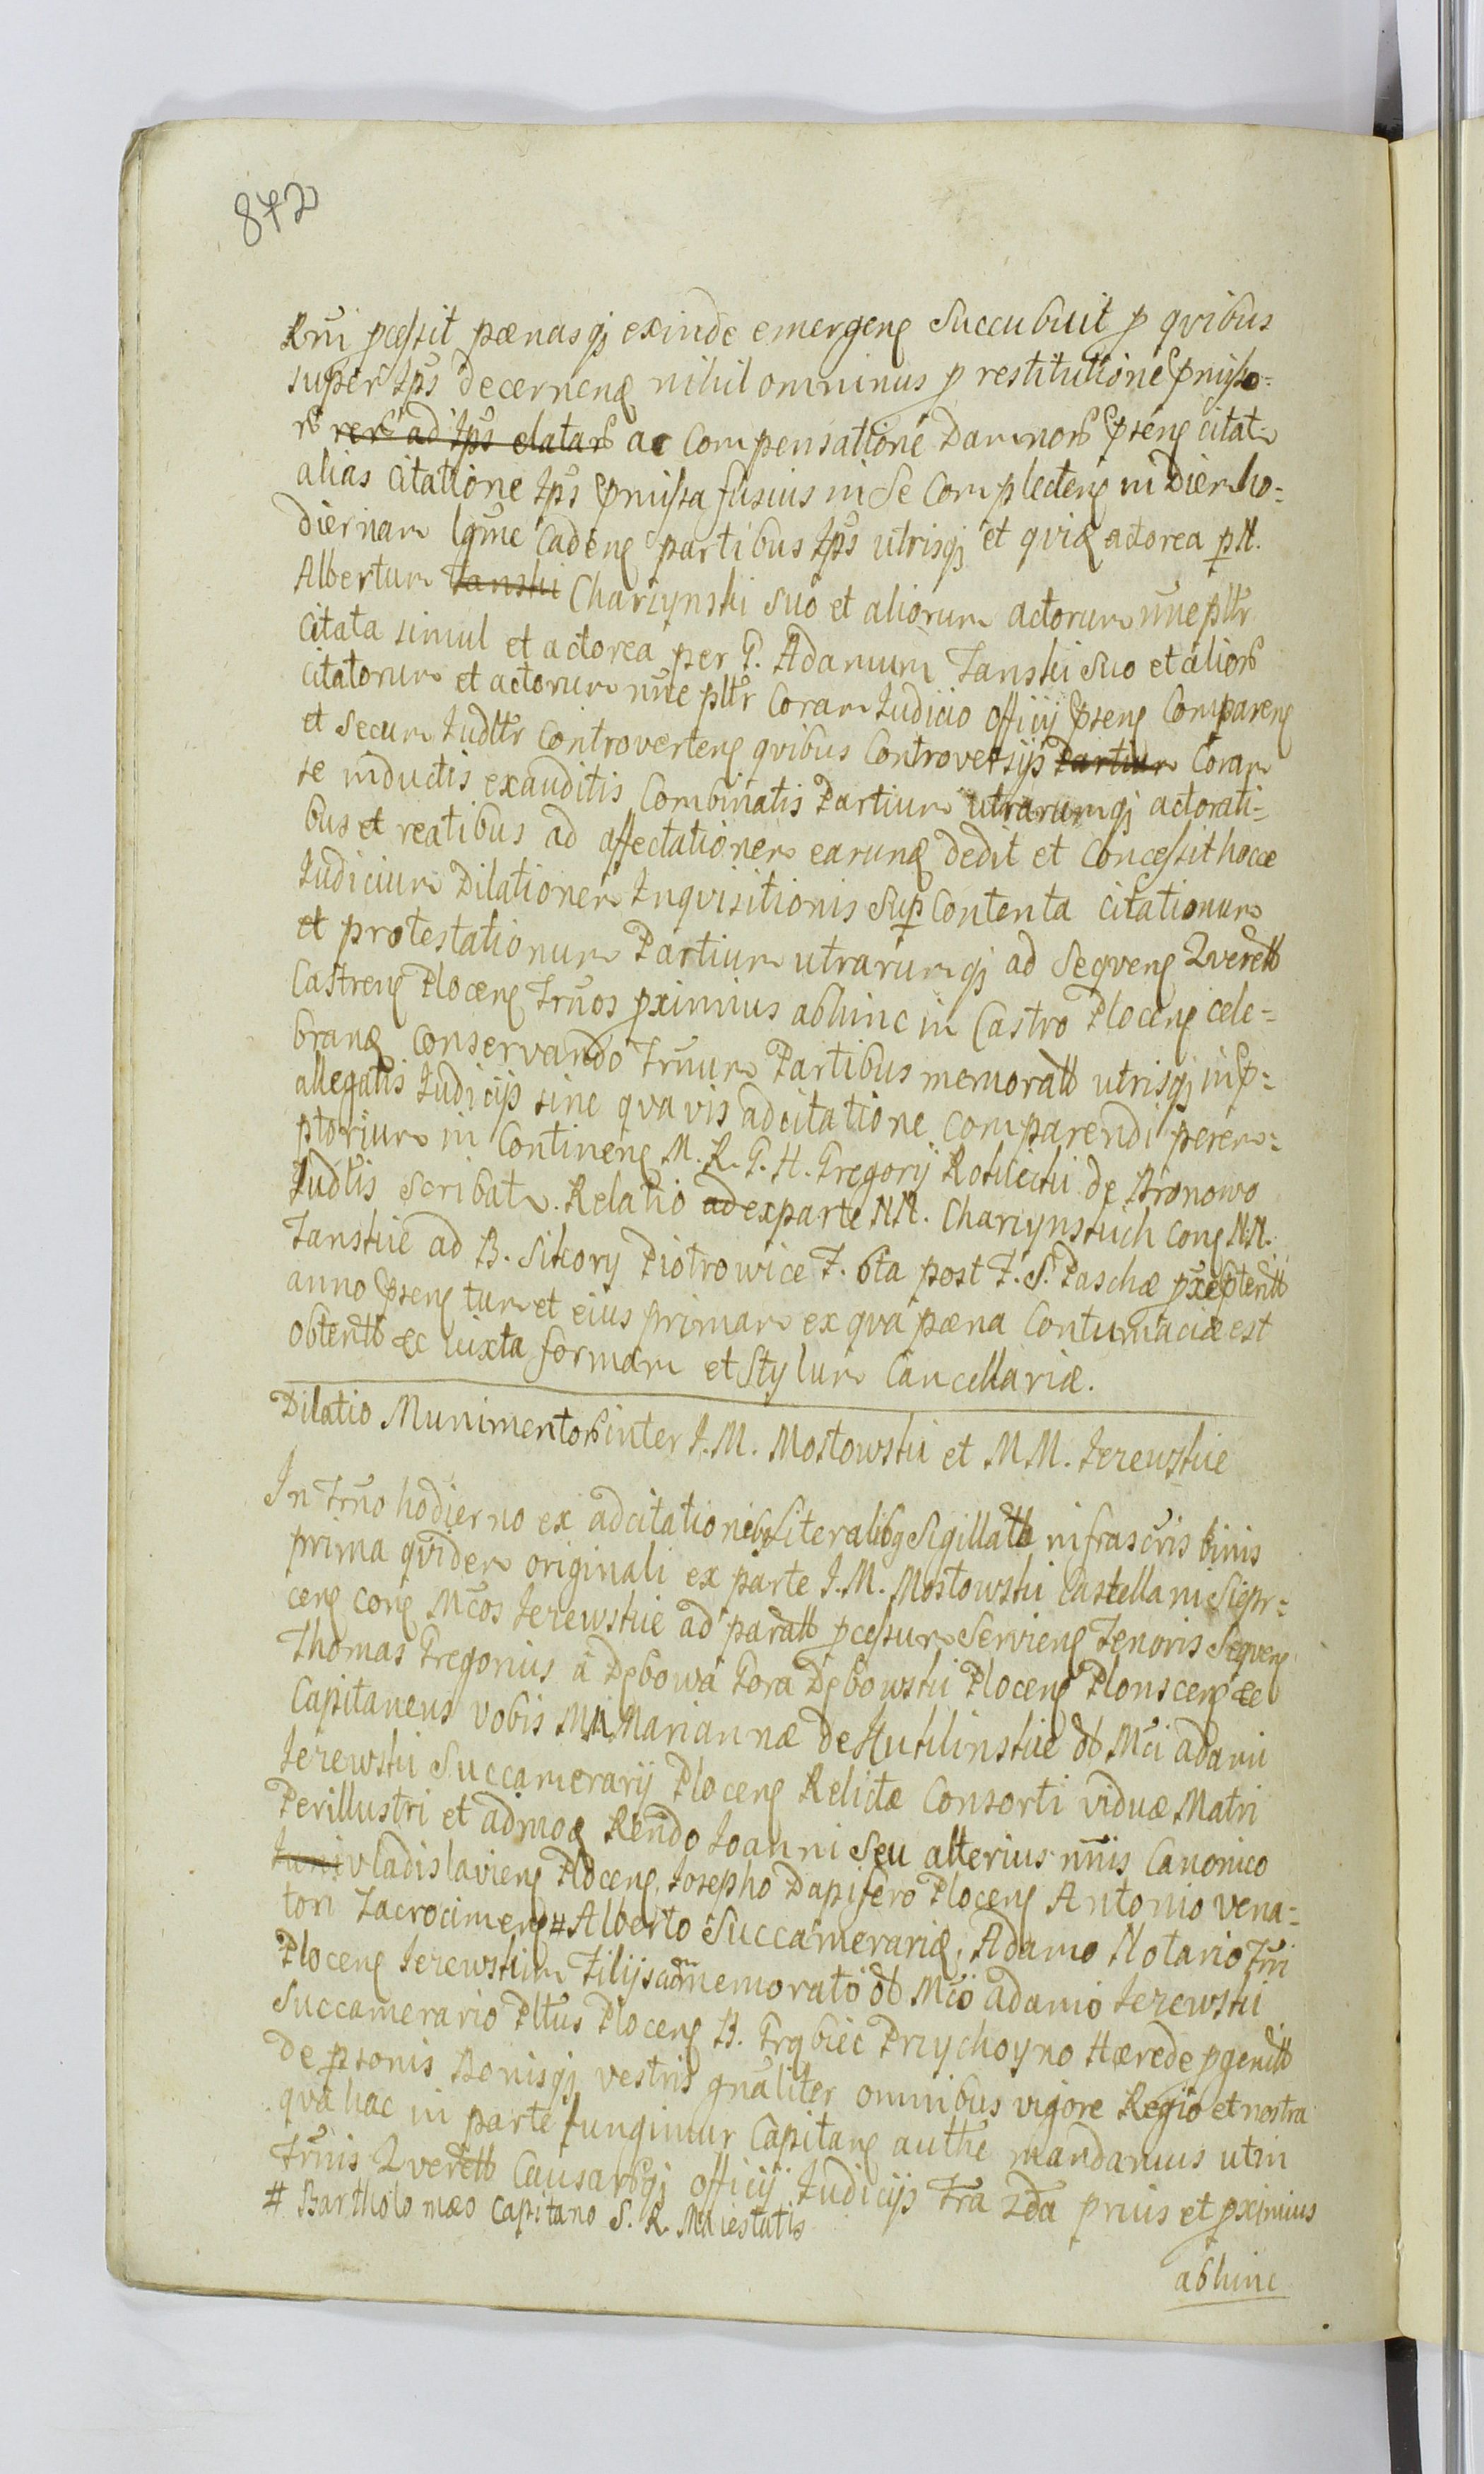 842
Rni pcessit pænasqꝫ exinde emergenꝭ Succubuit p qvibus
super Ips decernenꝭ nihilominus p restitutione pmisso-
rꝝ rerꝝ ad Ips elatarꝝ ac compensatione Damnorꝝ psenꝭ citat
alias citatione Ips pmissa fusius in Se Complectenꝭ in Diem ho-
diernam lqme Cadenꝭ partibus Ips utrisqꝫ et qvia actorea p N.
Albertum Tanski Charzynski Suo et aliorum actorum nne pltr
citata simul et actorea per G. Adamum Tanski Suo et aliorꝝ
citatorum et actorum nne pltr Coram Iudicio Officij psenꝭ Comparenꝭ
et Secum Iudltr Controvertenꝭ qvibus Controversijs Partium Coram
se inductis exauditis Combinatis Partium utrarumqꝫ actorati-
bus et reatibus ad affectationem earunꝭ dedit et Concessit hocce
Iudicium Dilationem Inqvisitionis Sup Contenta citationum
et protestationum Partium utrarumqꝫ ad Seqvenꝭ Qverell
Castrenꝭ Plocenꝭ Trnos pximius abhinc in Castro Plocenꝭ cele-
branꝭ Conservando Trnum Partibus memoratt utrisqꝫ in p-
allegatis Iudicijs sine qvavis adcitatione comparendi perem-
ptorium in Continenꝭ M. R. G. H. Gregorij Rosciecki de Bronowo
Iudlis Scribat. Relatio ad ex parte NN. Charzynskich Conꝭ NN.
Tanskie ad B. Sikory Piotrowice F. 6ta post F. S. Paschæ pxe ptentt
anno psenꝭ tum et eius primam ex qva pæna Contumaciæ est
obtentt &c iuxta formam et Stylum Cancellariæ.
Dilatio Munimentorꝝ inter I. M. Mostowski et M M. Jerewskie
In Trno hodierno ex adcitationibꝫ Literalibꝫ Sigillatt infrascris binis
prima qvidem originali ex parte I. M. Mostowski Castellani Sierp-
cenꝭ Conꝭ Mcos Jerewskie ad paratt pcessum Servienꝭ Tenoris Seqvenꝭ
Thomas Gregorius a Dębowa Gora Dębowski Plocenꝭ Plonscenꝭ &c
Capitaneus Vobis MM Mariannæ de Kuklinskie olt Mci Adami
Jerewski Succamerarij Plocenꝭ Relictæ Consorti viduæ Matri
Perillustri et admoꝭ Rendo Ioanni Seu alterius nnis Canonico
Iuni Vladislavienꝭ Plocenꝭ, Iosepho Dapifero Plocenꝭ Antonio Vena-
tori Zacrocimenꝭ # Alberto Succamerariꝭ, Adamo Notario Trri
Plocenꝭ Jerewskim Filijs cum memorato olt Mco Adamo Jerewski
Succamerario Pltus Plocenꝭ B. Grąbiec Przychoyno Hærede pgenitt
De psonis Bonisqꝫ vestris gnaliter omnibus vigore Regio et nostra
qva hac in parte fungimur Capitanꝭ authe mandamus ut in
Trnis Qverell Causarꝝqꝫ Officij Iudicijs Fra 2da prius et pximius
# Bartholomæo Capitano S. R. Maiestatis
abhinc